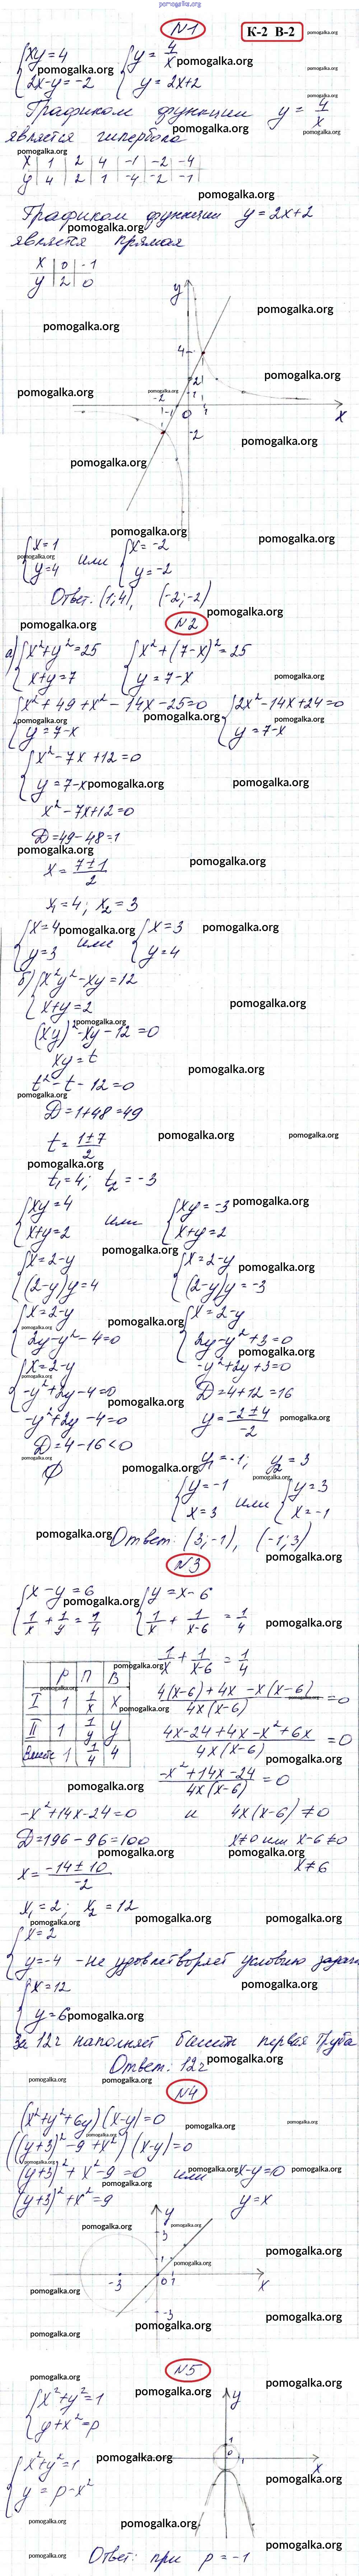 pomogalka.org
№1
К-2 В-2
{xy = 4
2x-y = -2
{y = 4/x
y = 2x+2
Графиком функции y = 4/x
является гипербола
x | 1 | 2 | 4 | -1 | -2 | -4
y | 4 | 2 | 1 | -4 | -2 | -1
Графиком функции y = 2x+2
является прямая
x | 0 | -1
y | 2 | 0
y
4
2
1
-2
-1
0
1
x
-2
{x = 1
y = 4
или
{x = -2
y = -2
Ответ. (1;4), (-2;-2)
№2
а) {x²+y² = 25
x+y = 7
{x²+(7-x)² = 25
y = 7-x
{x²+49+x²-14x-25=0
y = 7-x
{2x²-14x+24=0
y = 7-x
{x²-7x+12=0
y = 7-x
x²-7x+12=0
D=49-48=1
x = (7±1)/2
x₁=4; x₂=3
{x=4
y=3
или
{x=3
y=4
б) {x²y²-xy=12
x+y=2
(xy)²-xy-12=0
xy=t
t²-t-12=0
D=1+48=49
t = (1±7)/2
t₁=4; t₂=-3
{xy=4
x+y=2
или
{xy=-3
x+y=2
{x=2-y
(2-y)y=4
{x=2-y
(2-y)y=-3
{x=2-y
2y-y²-4=0
{x=2-y
2y-y²+3=0
{x=2-y
-y²+2y-4=0
-y²+2y+3=0
-y²+2y-4=0
D=4+12=16
D=4-16<0
y = (-2±4)/-2
∅
y₁=-1; y₂=3
{y=-1
x=3
или
{y=3
x=-1
Ответ. (3;-1), (-1;3)
№3
{x-y=6
1/x + 1/y = 1/4
{y=x-6
1/x + 1/(x-6) = 1/4
| Р | П | В
I | 1 | 1/x | x
II | 1 | 1/y | y
Вместе | 1 | 1/4 | 4
1/x + 1/(x-6) = 1/4
(4(x-6)+4x-x(x-6))/(4x(x-6)) = 0
(4x-24+4x-x²+6x)/(4x(x-6)) = 0
(-x²+14x-24)/(4x(x-6)) = 0
-x²+14x-24=0 и 4x(x-6)≠0
D=196-96=100
x≠0 или x-6≠0
x = (-14±10)/-2
x≠6
x₁=2; x₂=12
{x=2
y=-4 - не удовлетворяет условию задачи
{x=12
y=6
За 12ч наполняет бассейн первая труба
Ответ: 12ч
№4
(x²+y²+6y)(x-y)=0
((y+3)²-9+x²)(x-y)=0
(y+3)²+x²-9=0 или x-y=0
(y+3)²+x²=9
y=x
y
3
1
-3
0
1
x
-3
№5
{x²+y²=1
y+x²=p
{x²+y²=1
y=p-x²
y
1
0
1
x
Ответ: при p=-1